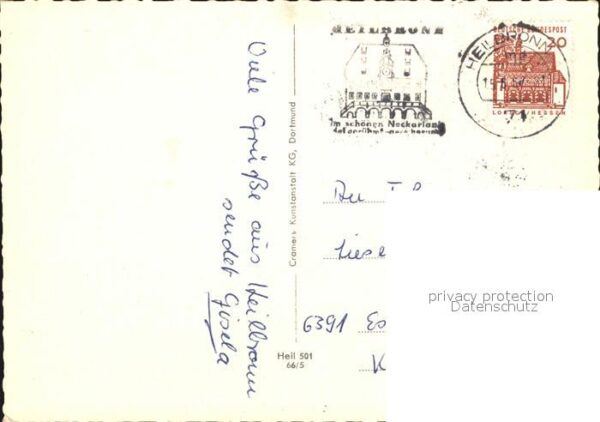 Viele Grüße aus Heilbronn
sendet Gisela
Cramers Kunstanstalt KG, Dortmund
Heil 501
66/5
HEILBRONN
Im schönen Neckarland
HEILBRONN
DEUTSCHE BUNDESPOST
20
LORSCH/HESSEN
An
Liese
6391 Es
K
privacy protection
Datenschutz